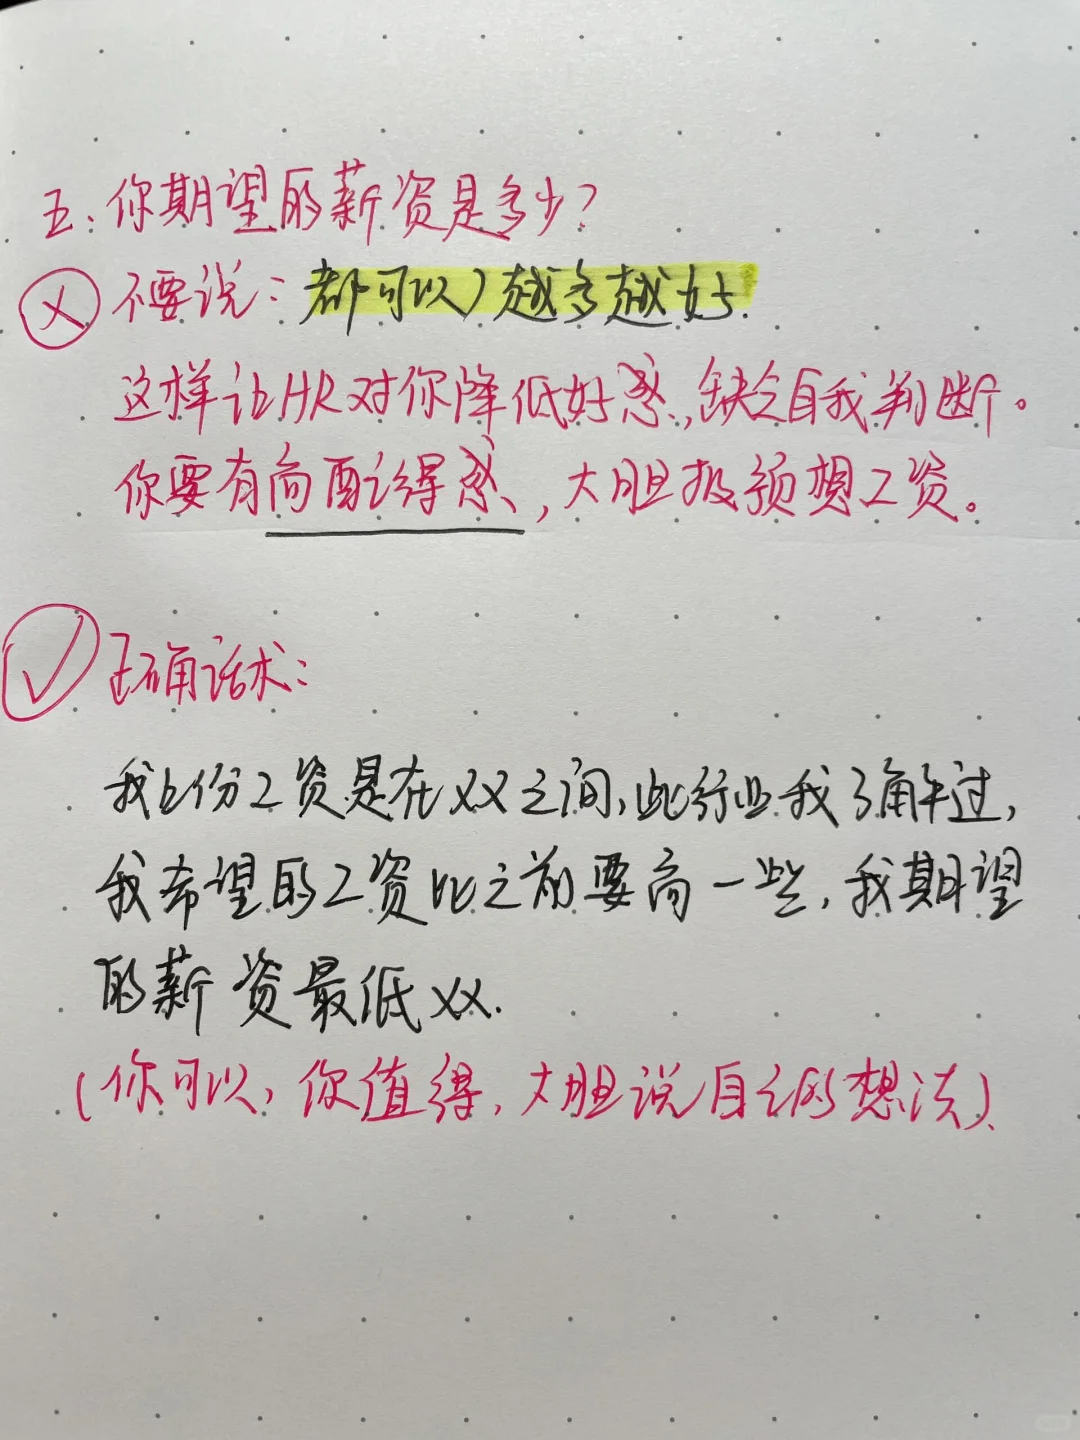 五：你期望的薪资是多少？
X 不要说：都可以，越多越好.
这样让HR对你降低好感，缺乏自我判断。
你要有高配得感，大胆报预想工资。
✓ 正确话术：
我上份工资是在XX之间，此行业我了解过，
我希望的工资比之前要高一些，我期望
的薪资最低XX.
（你可以，你值得，大胆说自己的想法）